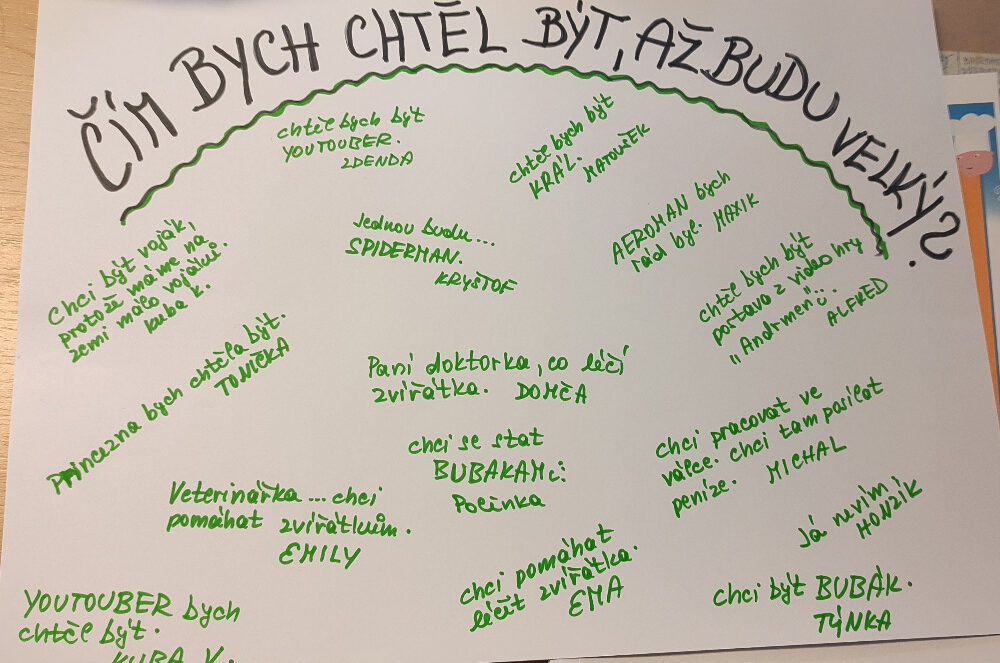 ČÍM BYCH CHTĚL BÝT, AŽ BUDU VELKÝ?
chtěl bych být
YOUTOUBER.
ZDENDA
chtěl bych být
KRÁL.
MATOUŠEK
Chci být voják,
protože máme na
zemi málo vojáků.
kuba k.
Jednou budu...
SPIDERMAN.
KRYŠTOF
AEROMAN bych
rád byl. MAXIK
chtěl bych být
postava z video hry
"Andrmen"
ALFRED
Princezna bych chtěla být.
TONIČKA
Paní doktorka, co léčí
zvířátka. DOMČA
chci se stat
BUBAKAM
Polinka
chci pracovat ve
válce. chci tam posílat
peníze. MICHAL
Veterinářka ... chci
pomáhat zvířátkům.
EMILY
Já nevím
HONZÍK
chci pomáhat
léčit zvířátka.
EMA
chci být BUBÁK.
TÝNKA
YOUTOUBER bych
chtěl být.
KUBA V.